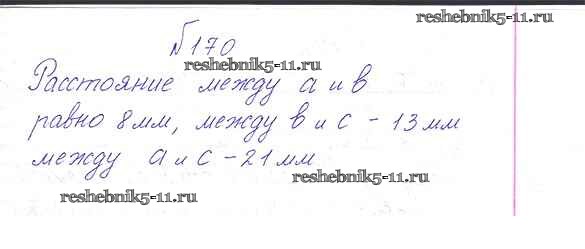 reshebnik5-11.ru
№170
reshebnik5-11.ru
Расстояние между a и b
равно 8 мм, между b и c - 13 мм
между a и c - 21 мм
reshebnik5-11.ru
reshebnik5-11.ru